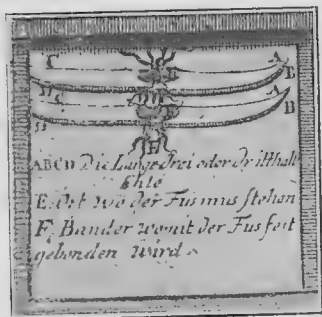 C A
E B
D C A
B
D
H
ABCD Die Lange drei oder dritthalb
Ehle
E. Ort wo der Fus mus stehen
F. Bander womit der Fus fest
gebonden wird